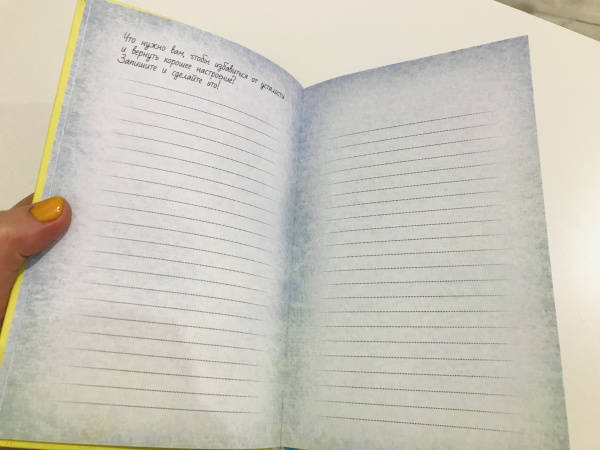 Что нужно вам, чтобы избавиться от усталости
и вернуть хорошее настроение?
Запишите и сделайте это!